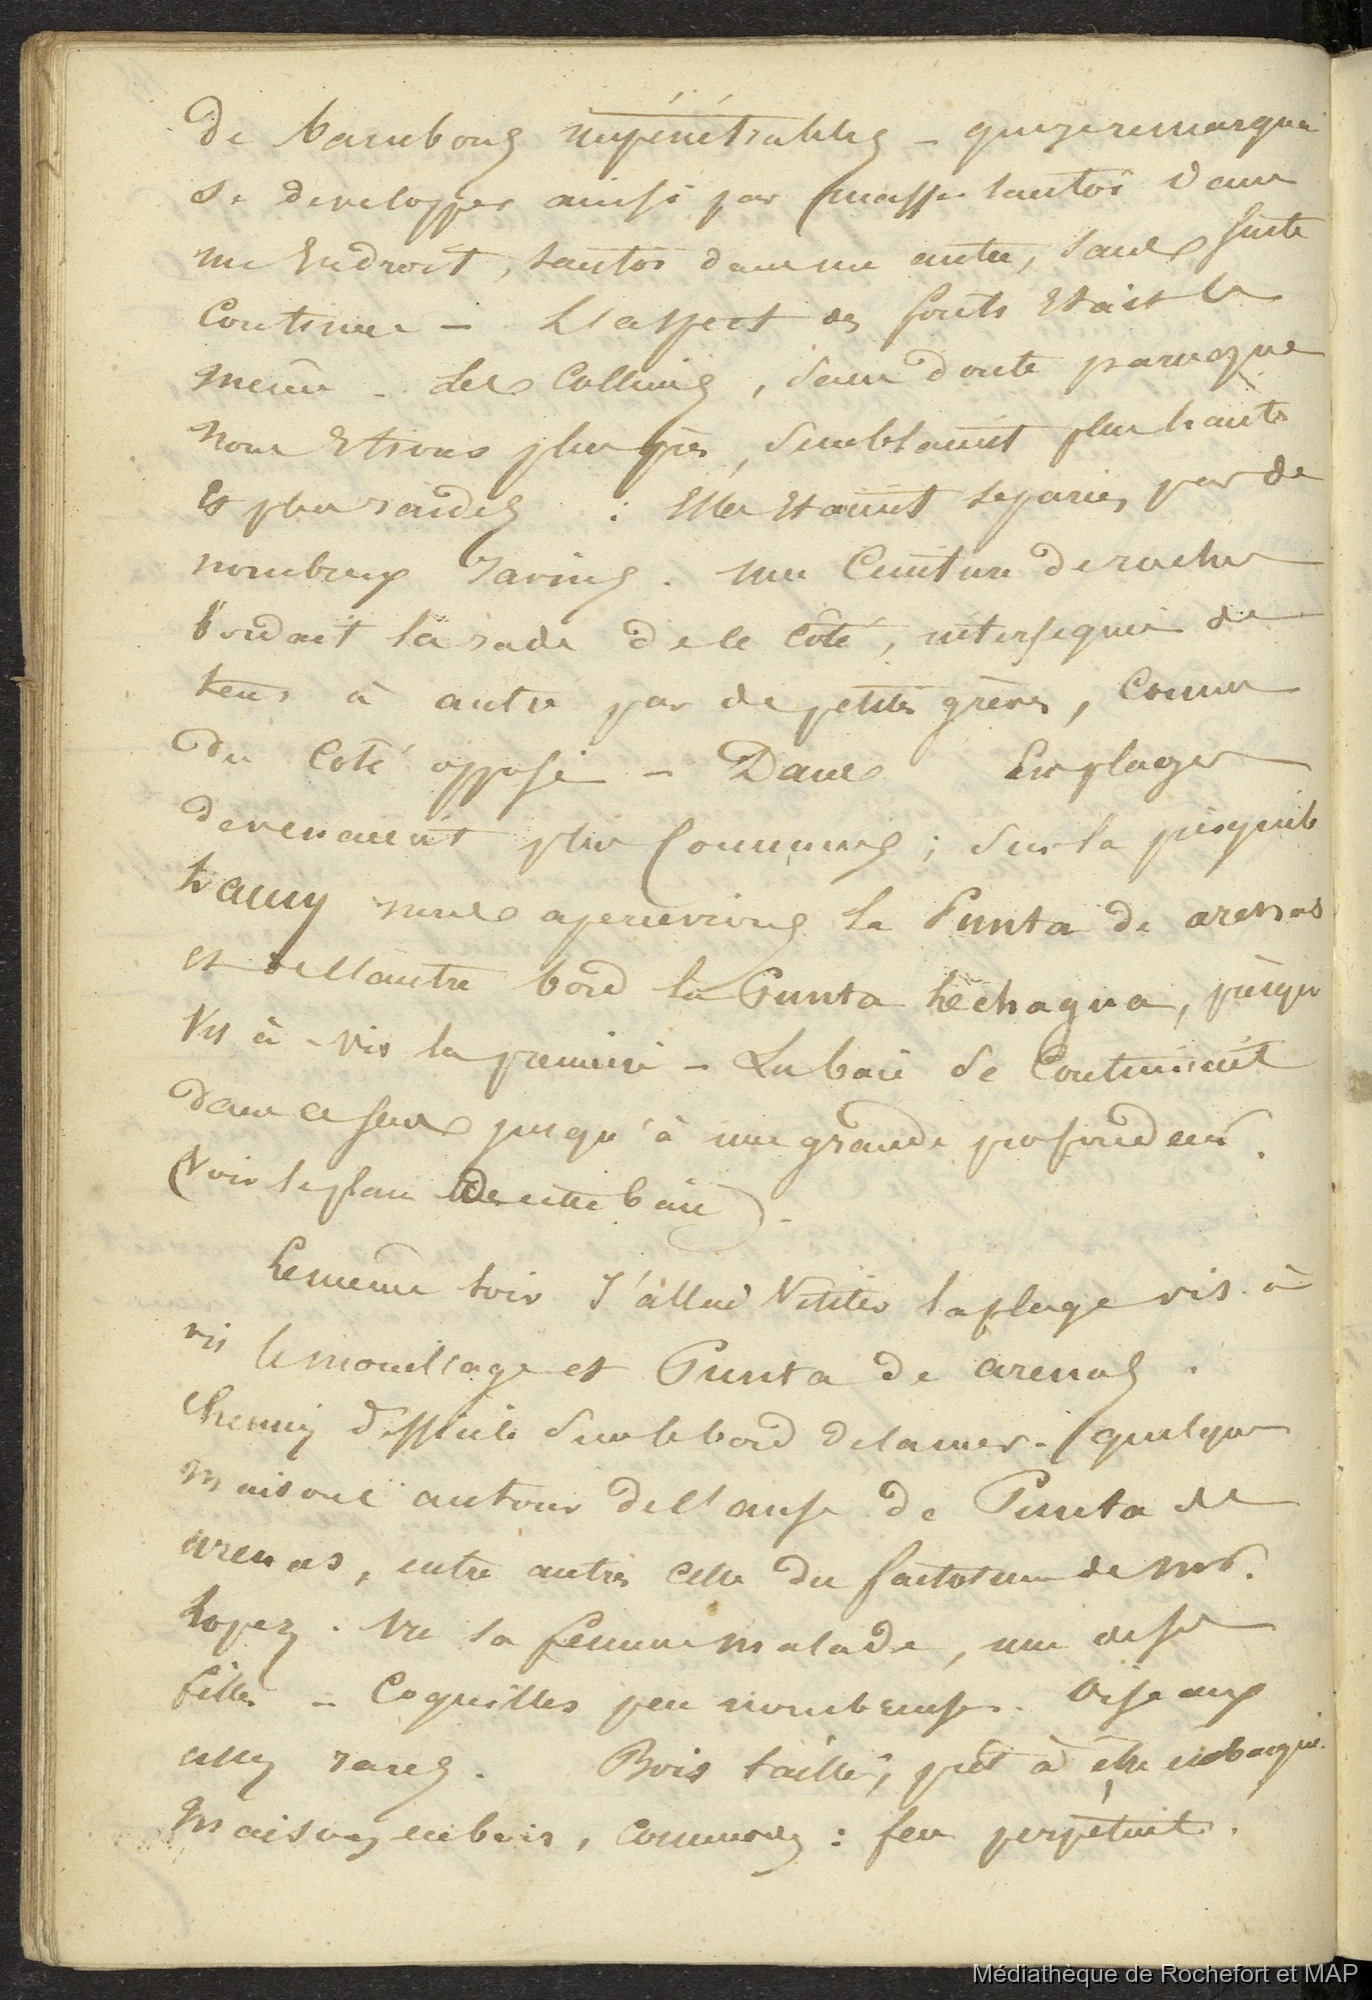 de bambous impénétrables – que je remarquai
se developper ainsi par masses tantôt dans
un Endroit, tantôt dans un autre, sans suite
Continue – L'aspect des forêts Etait le
même – les Collines, sans doute parceque
nous Etions plus près, Semblaient plus hautes
Et plus raides : Elles Etaient separées par de
nombreux ravins. une Ceinture de roches
bordait la rade de ce Coté, intersequée de
tems à autre par de petites grèves, Comme
du Coté opposé – Dans les plages
devenaient plus Communes ; Sur la presqu'ile
nous apercevions la Punta de arenas
et de l'autre bord la Punta hechagua, presqu
Vis à-vis la première – La baie se Continuait
dans ce sens jusqu'à une grande profondeur.
(Voir le plan de cette baie).
Le même soir J'allai Visiter la plage vis à
vis le mouillage et Punta de arenas.
Chemin difficile Sur le bord de la mer. quelques
maisons autour de l'anse de Punta de
arenas, entre autres celle du factotum de Mr.
Lopez. Vu sa femme malade, une de ses
filles – Coquilles peu nombreuses. Oiseaux
assez rares. Bois taillé, prêt à être embarqué.
Maisons en bois, commodes : feu perpétuel.